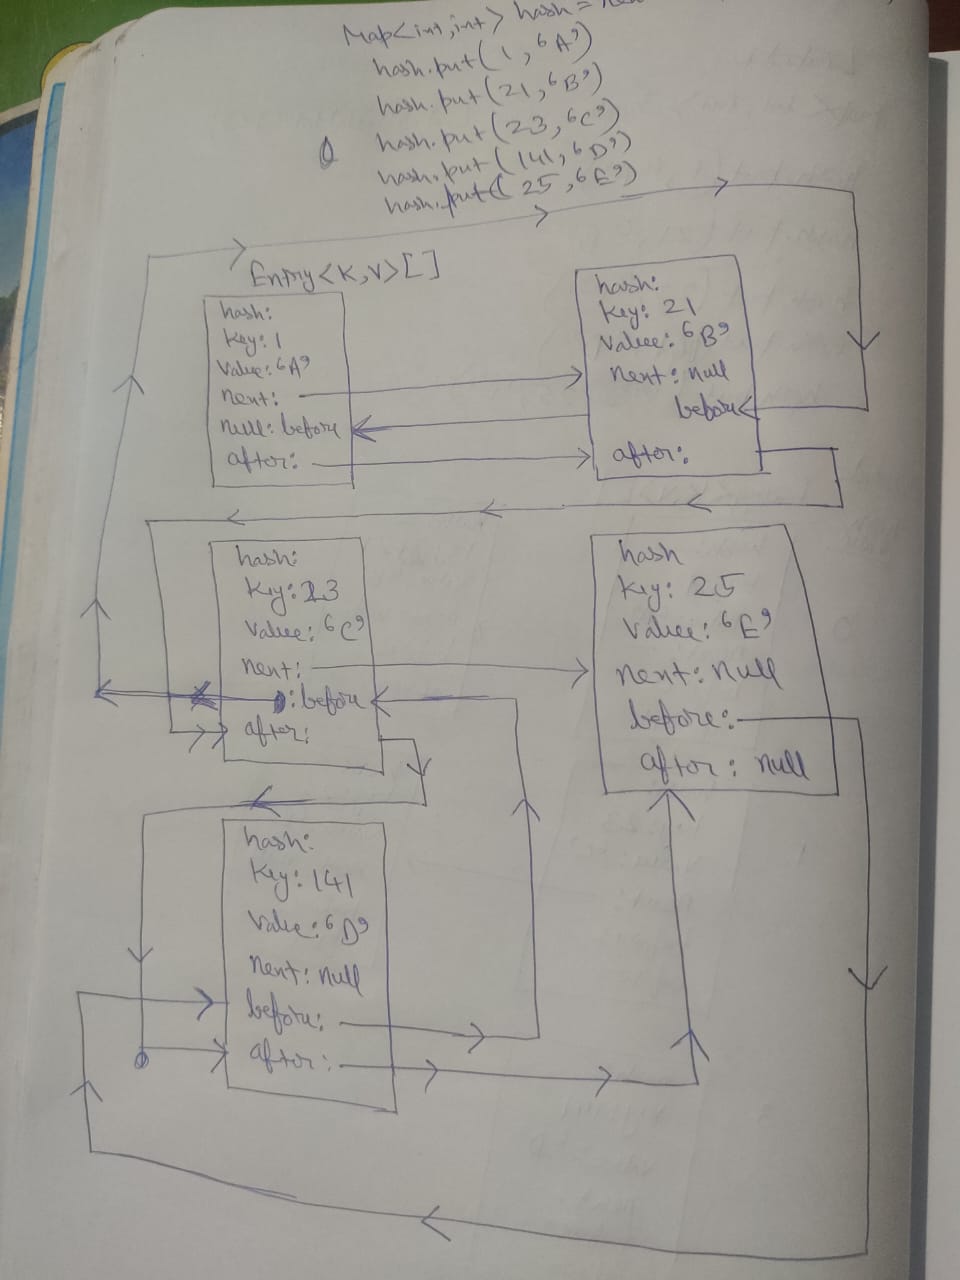 Map<int,int> hash = new
hash.put(1,‘A’)
hash.put(21,‘B’)
hash.put(23,‘C’)
hash.put(141,‘D’)
hash.put(25,‘E’)
Entry<K,V>[]
hash:
Key: 1
Value: ‘A’
next:
null: before
after:
hash:
Key: 21
Value: ‘B’
next: null
before
after:
hash:
Key: 23
Value: ‘C’
next:
: before
after:
hash
Key: 25
Value: ‘E’
next: null
before:
after: null
hash:
Key: 141
Value: ‘D’
next: null
before:
after: